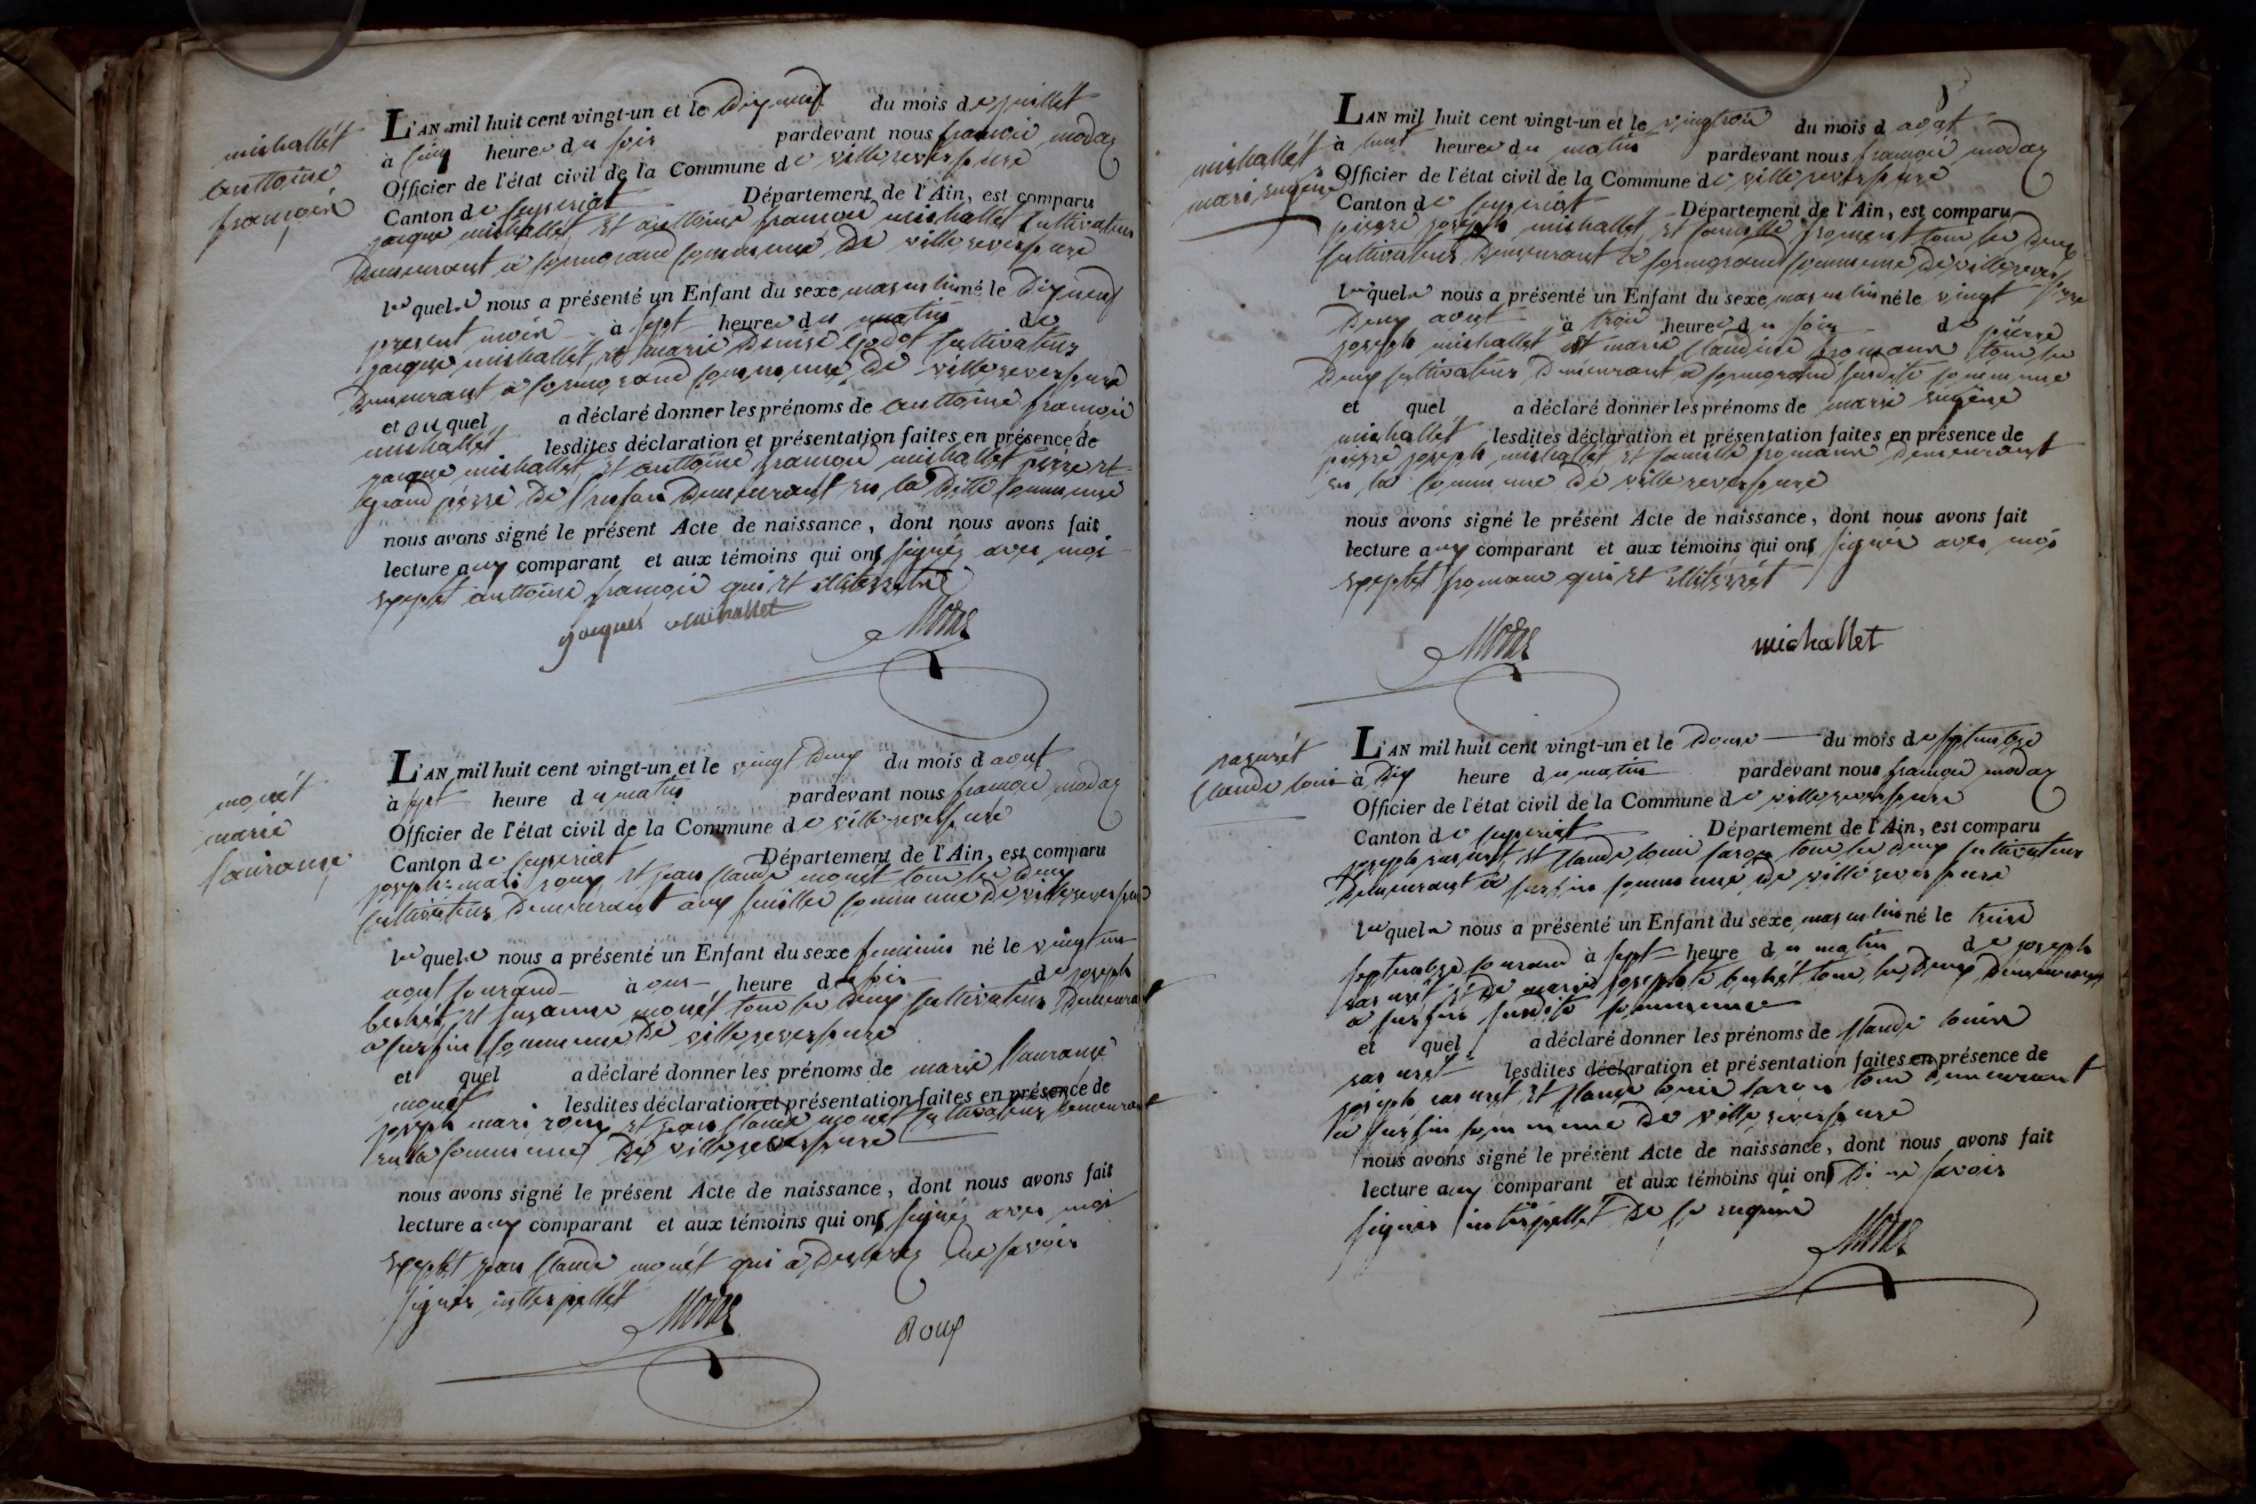 michallét
anttoine
françois
L'AN mil huit cent vingt-un et le Dix neuf du mois de juillet
à cinq heures du soir pardevant nous françois modaz
Officier de l'état civil de la Commune de villereversure
Canton de Ceyzeriat Département de l'Ain, est comparu
jacque michallét et anttoine françois michallet cultivateurs
Demeurant à commune De villereversure
lesquels nous a présenté un Enfant du sexe masculin né le Dix neuf
present mois à sept heures du matin de
jacque michallet et marie Denise Godot cultivateurs
Demeurant à commune De villereversure
et au quel a déclaré donner les prénoms de anttoine françois
michallet lesdites déclaration et présentation faites en présence de
jacque michallet et anttoine françois michallet père et
grand père De l'enfan Demeurant en la Ditte commune
nous avons signé le présent Acte de naissance, dont nous avons fait
lecture aux comparant et aux témoins qui ont signés avec moi
exeptet anttoine françois qui et
jacques michallet Modaz
monét
marie
L'AN mil huit cent vingt-un et le vingt Deux du mois d aout
à sept heure du matin pardevant nous françois modaz
Officier de l'état civil de la Commune de villereversure
Canton de Ceyzeriat Département de l'Ain, est comparu
joseph mari roux et jean claude monet tous les deux
cultivateurs Demeurant aux commune De villereversure
lesquels nous a présenté un Enfant du sexe feminin né le vingt un
aout courand à onze heure du soir de joseph
et susanne monét tous les deux cultivateurs Demeurant
a commune De villereversure
et quel a déclaré donner les prénoms de marie
monet lesdites déclaration et présentation faites en présence de
joseph mari roux et jean claude monet cultivateurs Demeurant
en la commune De villereversure
nous avons signé le présent Acte de naissance, dont nous avons fait
lecture aux comparant et aux témoins qui ont signés avec moi
exeptet jean claude monét qui a Declarez ne savoir
signer
Modaz Roux
8
michallét
mari eugène
L'AN mil huit cent vingt-un et le vingt trois du mois d aout
à huit heures du matin pardevant nous françois modaz
Officier de l'état civil de la Commune de villereversure
Canton de Ceyzeriat Département de l'Ain, est comparu
pierre joseph michallet et tous les Deux
cultivateurs Demeurant à commune De villereversure
lesquels nous a présenté un Enfant du sexe masculin né le vingt
Deux aout à trois heures du soir de pierre
joseph michallet et marie claudine tous les
Deux cultivateurs Demeurant a susdite commune
et quel a déclaré donner les prénoms de mari eugène
michallet lesdites déclaration et présentation faites en présence de
pierre joseph michallet et Demeurant
en la commune De villereversure
nous avons signé le présent Acte de naissance, dont nous avons fait
lecture aux comparant et aux témoins qui ont signés avec moi
exeptet qui et
Modaz michallet
claude louis
L'AN mil huit cent vingt-un et le du mois de septembre
à Dix heure du matin pardevant nous françois modaz
Officier de l'état civil de la Commune de villereversure
Canton de Ceyzeriat Département de l'Ain, est comparu
joseph et claude louis tous les deux cultivateurs
Demeurant à commune De villereversure
lesquels nous a présenté un Enfant du sexe masculin né le
septembre courand à sept heure du matin de joseph
et De marie josephte tous les Deux Demeurant
a susdite commune
et quel a déclaré donner les prénoms de claude louis
lesdites déclaration et présentation faites en présence de
joseph et claude louis tous Demeurant
à commune De villereversure
nous avons signé le présent Acte de naissance, dont nous avons fait
lecture aux comparant et aux témoins qui ont Di ne savoir
signer De ce
Modaz